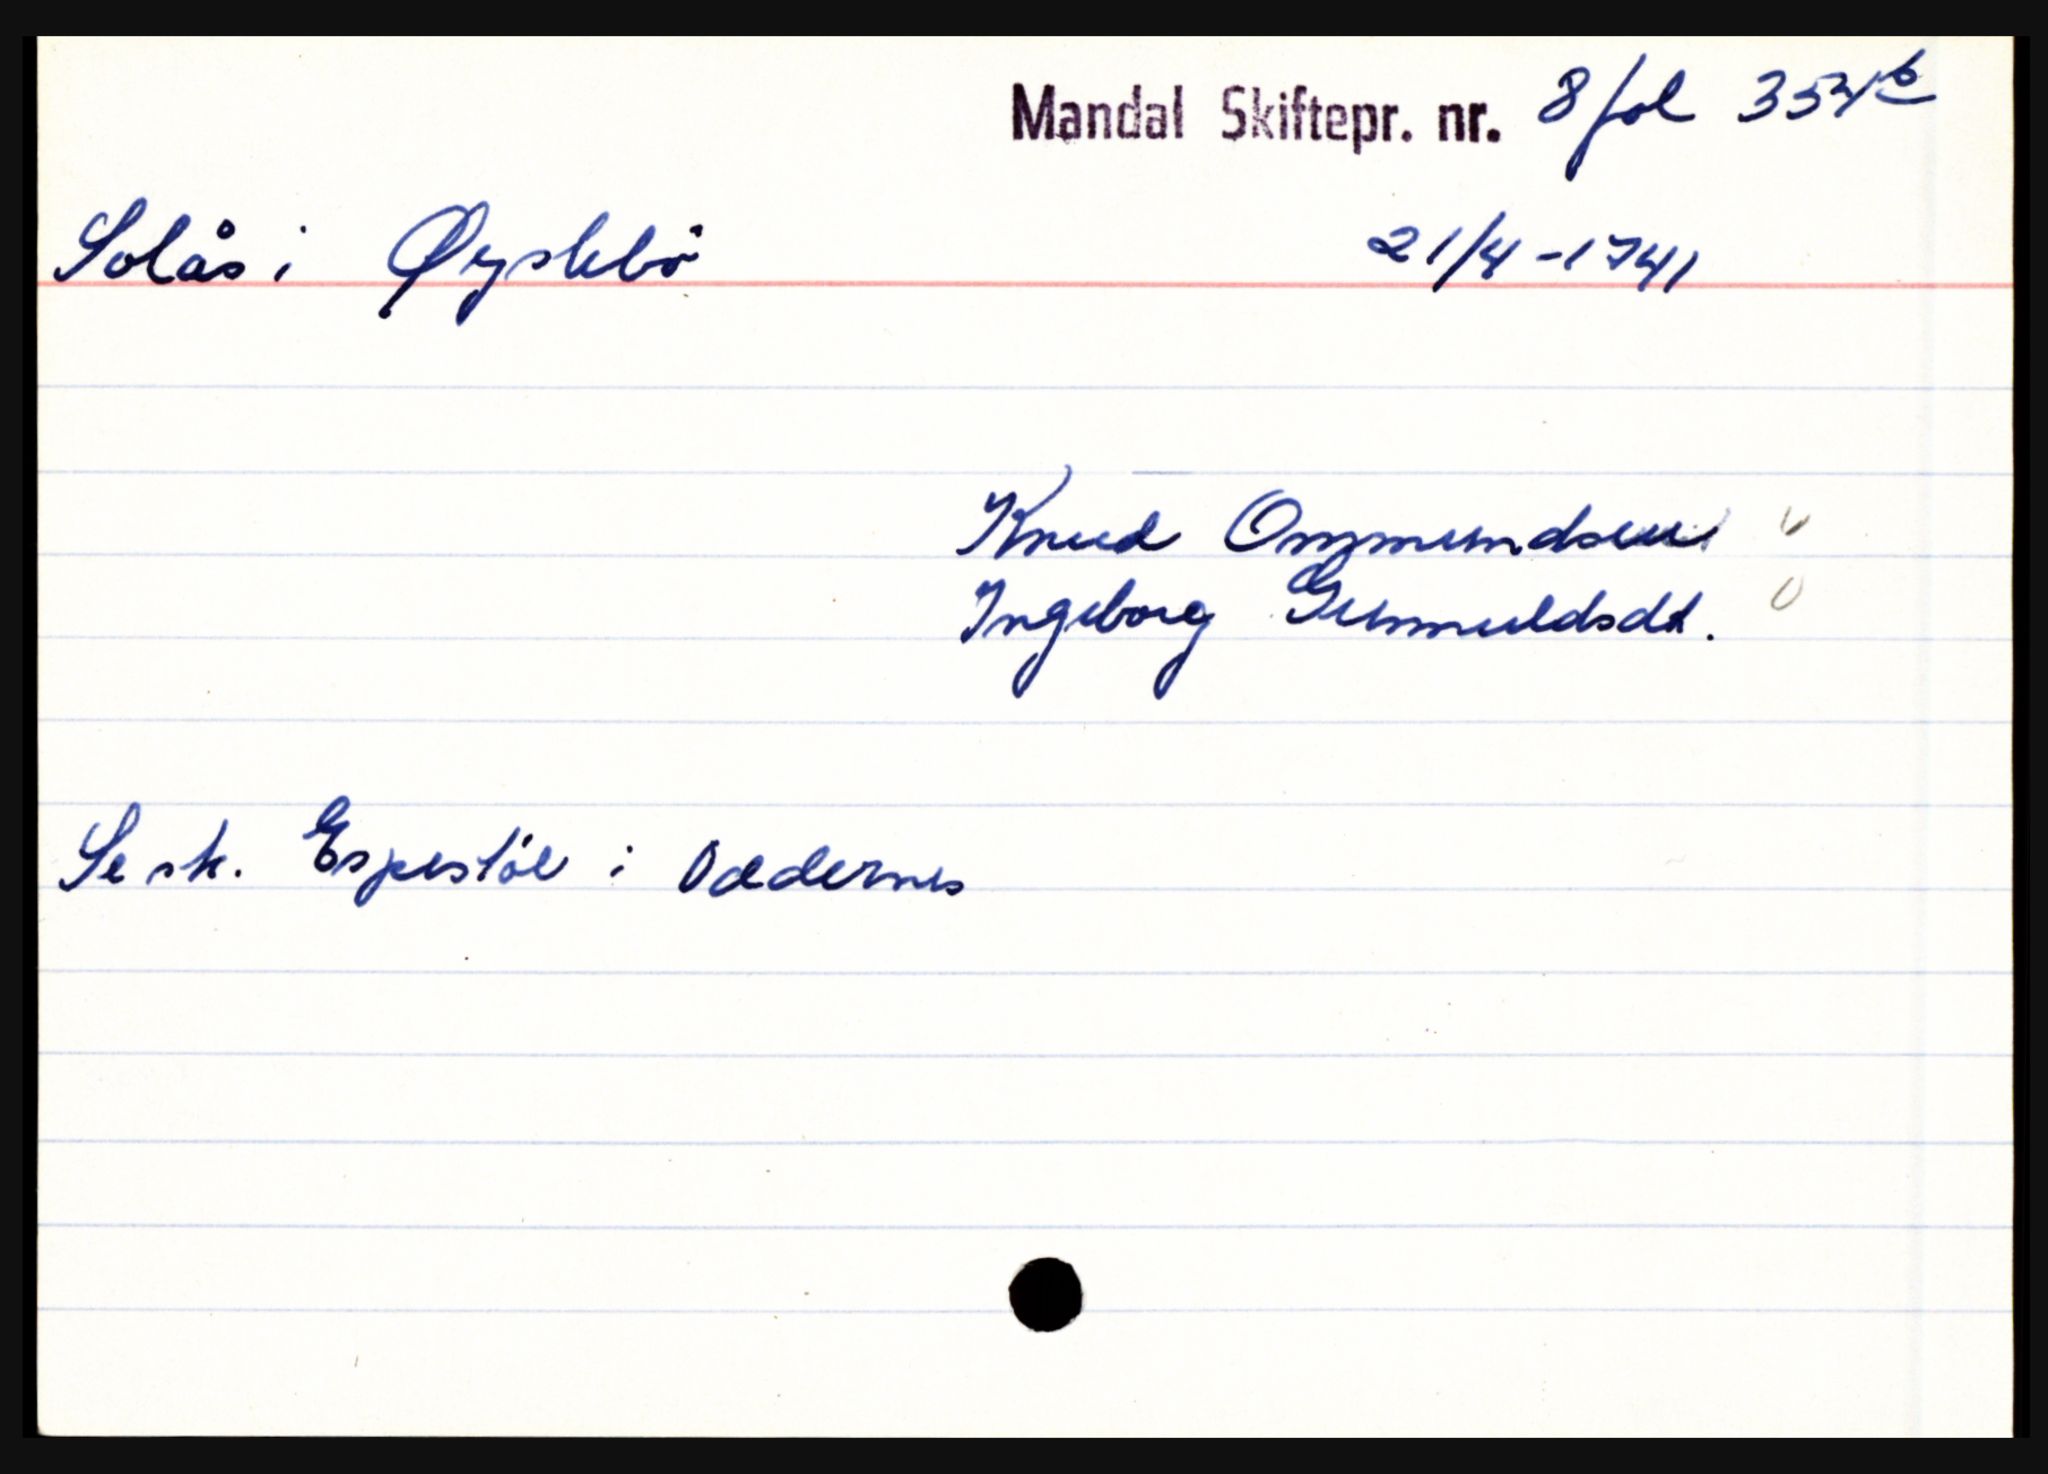 Mandal Skiftepr. nr. 8 fol 354b
Solås i Øyslebö 21/4-1741
Knud Ommundsen
Ingeborg Gunnuldsdt.
Se sk. Espestöl i Oddernes